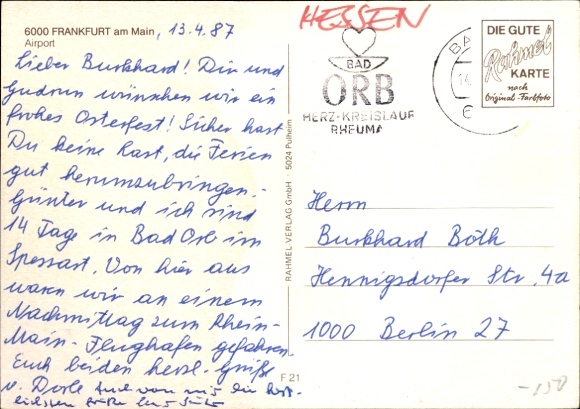 6000 FRANKFURT am Main, 13.4.87
Airport
Lieber Burkhard! Dir und
Gudrun wünschen wir ein
frohes Osterfest! Sicher hast
Du keine Last, die Ferien
gut herumzubringen.
Günter und ich sind
14 Tage in Bad Orb im
Spessart. Von hier aus
waren wir an einem
Nachmittag zum Rhein-
Main-Flughafen gefahren.
Euch beiden herzl. Grüße
v. Dorle Auch von mir die herz-
lichsten Grüße
F 21
RAHMEL-VERLAG GmbH · 5024 Pulheim
HESSEN
BAD
ORB
HERZ-KREISLAUF
RHEUMA
BA
14.
6
DIE GUTE
Rahmel
KARTE
nach
Original-Farbfoto
Herrn
Burkhard Böth
Hennigsdorfer Str. 4a
1000 Berlin 27
-150